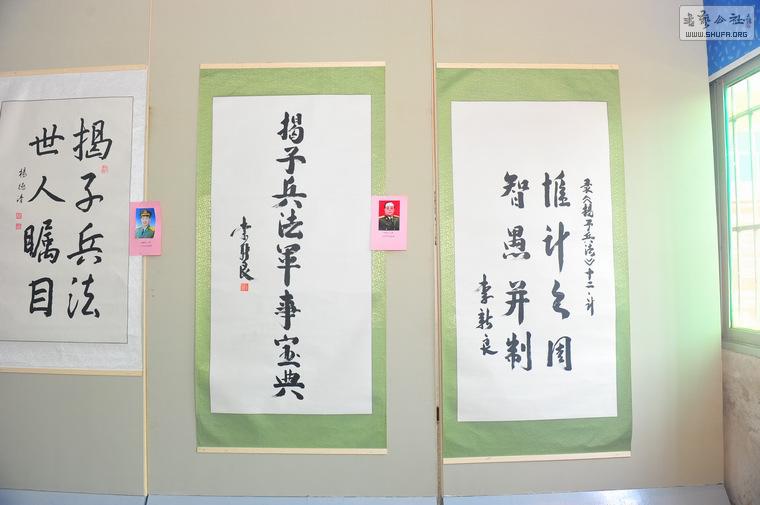 揭子兵法
世人瞩目
杨德清
揭子兵法军事宝典
李新良
录《揭子兵法》十二·计
惟计之周
智愚并制
李新良
书艺公社
WWW.SHUFA.ORG